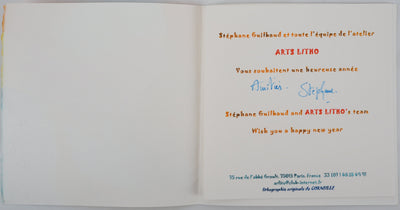 Stéphane Guilhaud et toute l'équipe de l'atelier
ARTS LITHO
Vous souhaitent une heureuse année
Amitiés. Stéphane.
Stéphane Guilhaud and ARTS LITHO's team
Wish you a happy new year
rue de l'abbé Groult, 75015 Paris, France
Lithographie originale de CORNEILLE